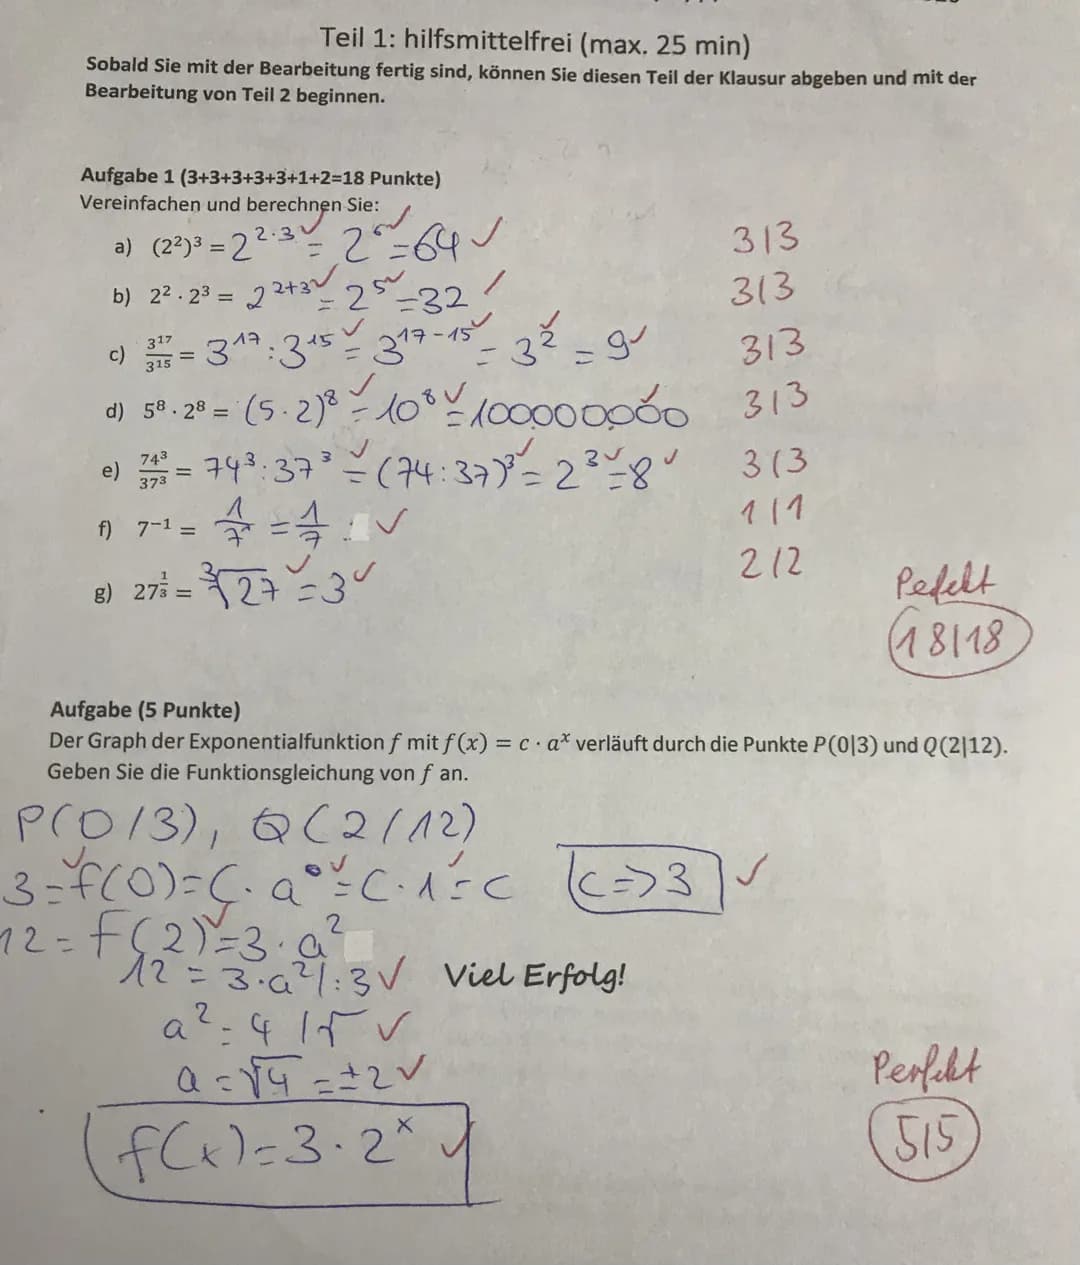 Teil 1: hilfsmittelfrei (max. 25 min)
Sobald Sie mit der Bearbeitung fertig sind, können Sie diesen Teil der Klausur abgeben und mit der
Bearbeitung von Teil 2 beginnen.
Aufgabe 1 (3+3+3+3+3+1+2=18 Punkte)
Vereinfachen und berechnen Sie:
a) (2²)³ = 2^{2·3} = 2⁶ = 64 ✓ 3|3
b) 2² · 2³ = 2^{2+3} = 2⁵ = 32 3|3
c) 3¹⁷/3¹⁵ = 3¹⁷ : 3¹⁵ = 3^{17-15} = 3² = 9 ✓ 3|3
d) 5⁸ · 2⁸ = (5·2)⁸ = 10⁸ = 100000000 3|3
e) 74³/37³ = 74³ : 37³ = (74:37)³ = 2³ = 8 ✓ 3|3
f) 7⁻¹ = 1/7¹ = 1/7 ✓ 1|1
g) 27^{1/3} = ³√27 = 3 ✓ 2|2
Pefekt
18|18
Aufgabe (5 Punkte)
Der Graph der Exponentialfunktion f mit f(x) = c · aˣ verläuft durch die Punkte P(0|3) und Q(2|12).
Geben Sie die Funktionsgleichung von f an.
P(0/3), Q(2/12)
3=f(0)=C·a⁰=C·1=C C=>3 ✓
12=f(2)=3·a²
12 = 3·a² |:3 ✓ Viel Erfolg!
a²=4 |√ ✓
a=√4=±2 ✓
f(x)=3·2ˣ ✓
Perfekt
5|5